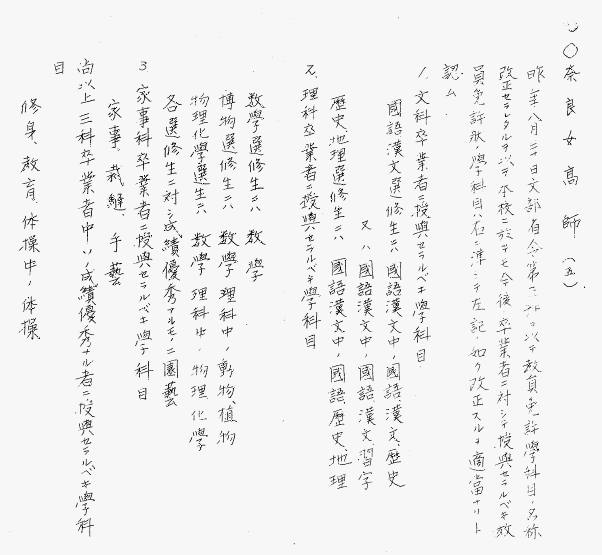 ○○奈良女高師(五)
昨年八月三十日文部省令第二十八ヲ以テ教員免許學科目ノ名称
改正セラレタルヲ以テ本校ニ於テモ今後卒業者ニ対シテ授與セラルベキ教
員免許状ノ學科目ハ右ニ準ジテ左記ノ如ク改正スルヲ適當ナリト
認ム
1. 文科卒業者ニ授與セラルベキ學科目
國語漢文選修生ニハ 國語漢文中ノ國語、漢文、歴史
又ハ 國語漢文中ノ國語、漢文、習字
歴史地理選修生ニハ 國語漢文中ノ國語、歴史、地理
2. 理科卒業者ニ授與セラルベキ學科目
数學選修生ニハ 数學
博物選修生ニハ 数學 理科中ノ動物、植物
物理化學選生ニハ 数學 理科中ノ物理、化學
各選修生ニ対シ成績優秀ナルモノニ園藝
3 家事科卒業者ニ授與セラルベキ學科目
家事、裁縫、手藝
尚以上三科卒業者中ソノ成績優秀ナル者ニ授與セラルベキ學科
目
修身、教育、体操中ノ体操